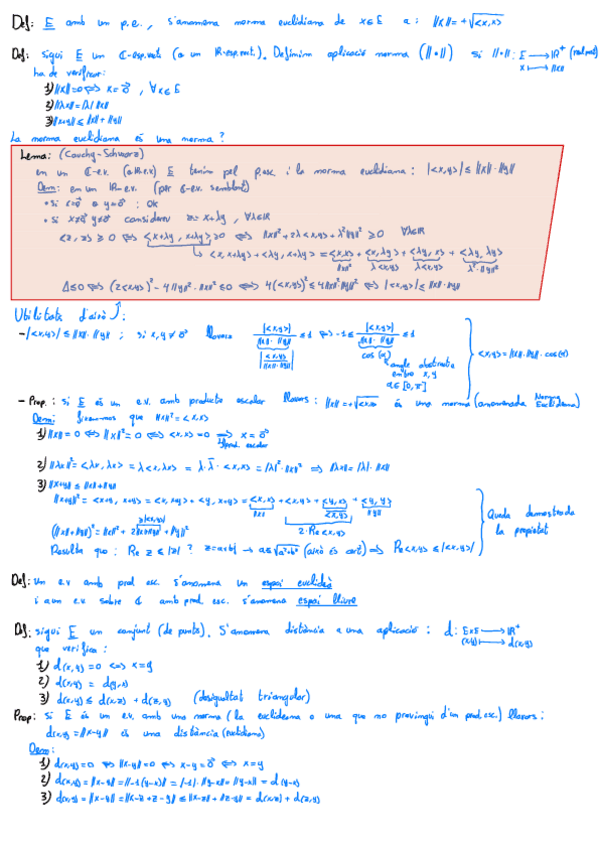 Def: E amb un p.e., s'anomena norma euclidiana de x∈E a: ||x|| = +√<x,x>
Def: sigui E un ℂ-esp.vect (o un ℝ-esp.vect). Definim aplicació norma (||•||) si ||•||: E → ℝ⁺ (real pos)
x ↦ ||x||
ha de verificar:
1) ||x||=0 ⟺ x=0⃗, ∀x∈E
2) ||λx||=|λ| ||x||
3) ||x+y|| ≤ ||x|| + ||y||
La norma euclidiana és una norma?
Lema: (Cauchy-Schwarz)
en un ℂ-e.v. (o ℝ-e.v) E tenim pel p.esc i la norma euclidiana: |<x,y>| ≤ ||x||·||y||
Dem: en un ℝ-e.v. (per ℂ-e.v. semblant)
• si x=0⃗ o y=0⃗ : OK
• si x≠0⃗ y≠0⃗ considerem z=x+λy, ∀λ∈ℝ
<z,z> ≥ 0 ⟺ <x+λy, x+λy> ≥ 0 ⟺ ||x||²+2λ<x,y>+λ²||y||² ≥ 0 ∀λ∈ℝ
↳ <x, x+λy> + <λy, x+λy> = <x,x> + <x,λy> + <λy,x> + <λy,λy>
||x||² λ<x,y> λ<x,y> λ²||y||²
Δ≤0 ⟺ (2<x,y>)² - 4||y||²·||x||² ≤ 0 ⟺ 4(<x,y>)² ≤ 4||x||²||y||² ⟺ |<x,y>| ≤ ||x||·||y||
Utilitats d'això:
- |<x,y>| ≤ ||x||·||y|| ; si x,y≠0⃗ llavors |<x,y>| / ||x||·||y|| ≤ 1 ⟺ -1 ≤ <x,y> / ||x||·||y|| ≤ 1
|<x,y> / ||x||·||y||| cos(α) <x,y> = ||x||·||y||·cos(α)
angle abstracte
entre x,y
α∈[0,π]
- Prop.: si E és un e.v. amb producte escalar llavors: ||x||=+√<x,x> és una norma (anomenada Norma Euclidiana)
Dem: fixem-nos que ||x||²=<x,x>
1) ||x||=0 ⟺ ||x||²=0 ⟺ <x,x>=0 ⟹ x=0⃗
prod. escalar
2) ||λx||²=<λx,λx> = λ<x,λx> = λ·λ̄·<x,x> = |λ|²·||x||² ⟹ ||λx||=|λ|·||x||
3) ||x+y|| ≤ ||x||+||y||
||x+y||²=<x+y, x+y> = <x,x+y> + <y,x+y> = <x,x> + <x,y> + <y,x> + <y,y>
||x|| <x,y> ||y||
(||x||+||y||)² = ||x||²+2||x||·||y||+||y||² 2·Re<x,y>
Queda demostrada
la propietat
Resulta que: Re z ≤ |z| ? z=a+bi → a≤√a²+b² (això és cert) ⟹ Re<x,y> ≤ |<x,y>|
Def: un e.v. amb prod. esc. s'anomena un espai euclidià
i a un e.v. sobre ℂ amb prod. esc. s'anomena
Def: sigui E un conjunt (de punts). S'anomena distància a una aplicació: d: E×E → ℝ⁺
(x,y) ↦ d(x,y)
que verifica:
1) d(x,y)=0 <=> x=y
2) d(x,y) = d(y,x)
3) d(x,y) ≤ d(x,z) + d(z,y) (desigualtat triangular)
Prop: si E és un e.v. amb una norma (la euclidiana o una que no provingui d'un prod.esc.) llavors:
d(x,y)=||x-y|| és una distància (euclidiana)
Dem:
1) d(x,y)=0 ⟺ ||x-y||=0 ⟺ x-y=0⃗ ⟺ x=y
2) d(x,y)=||x-y||=||-1(y-x)|| = |-1|·||y-x||=||y-x|| = d(y-x)
3) d(x,y)=||x-y||=||x-z+z-y|| ≤ ||x-z||+||z-y|| = d(x,z)+d(z,y)